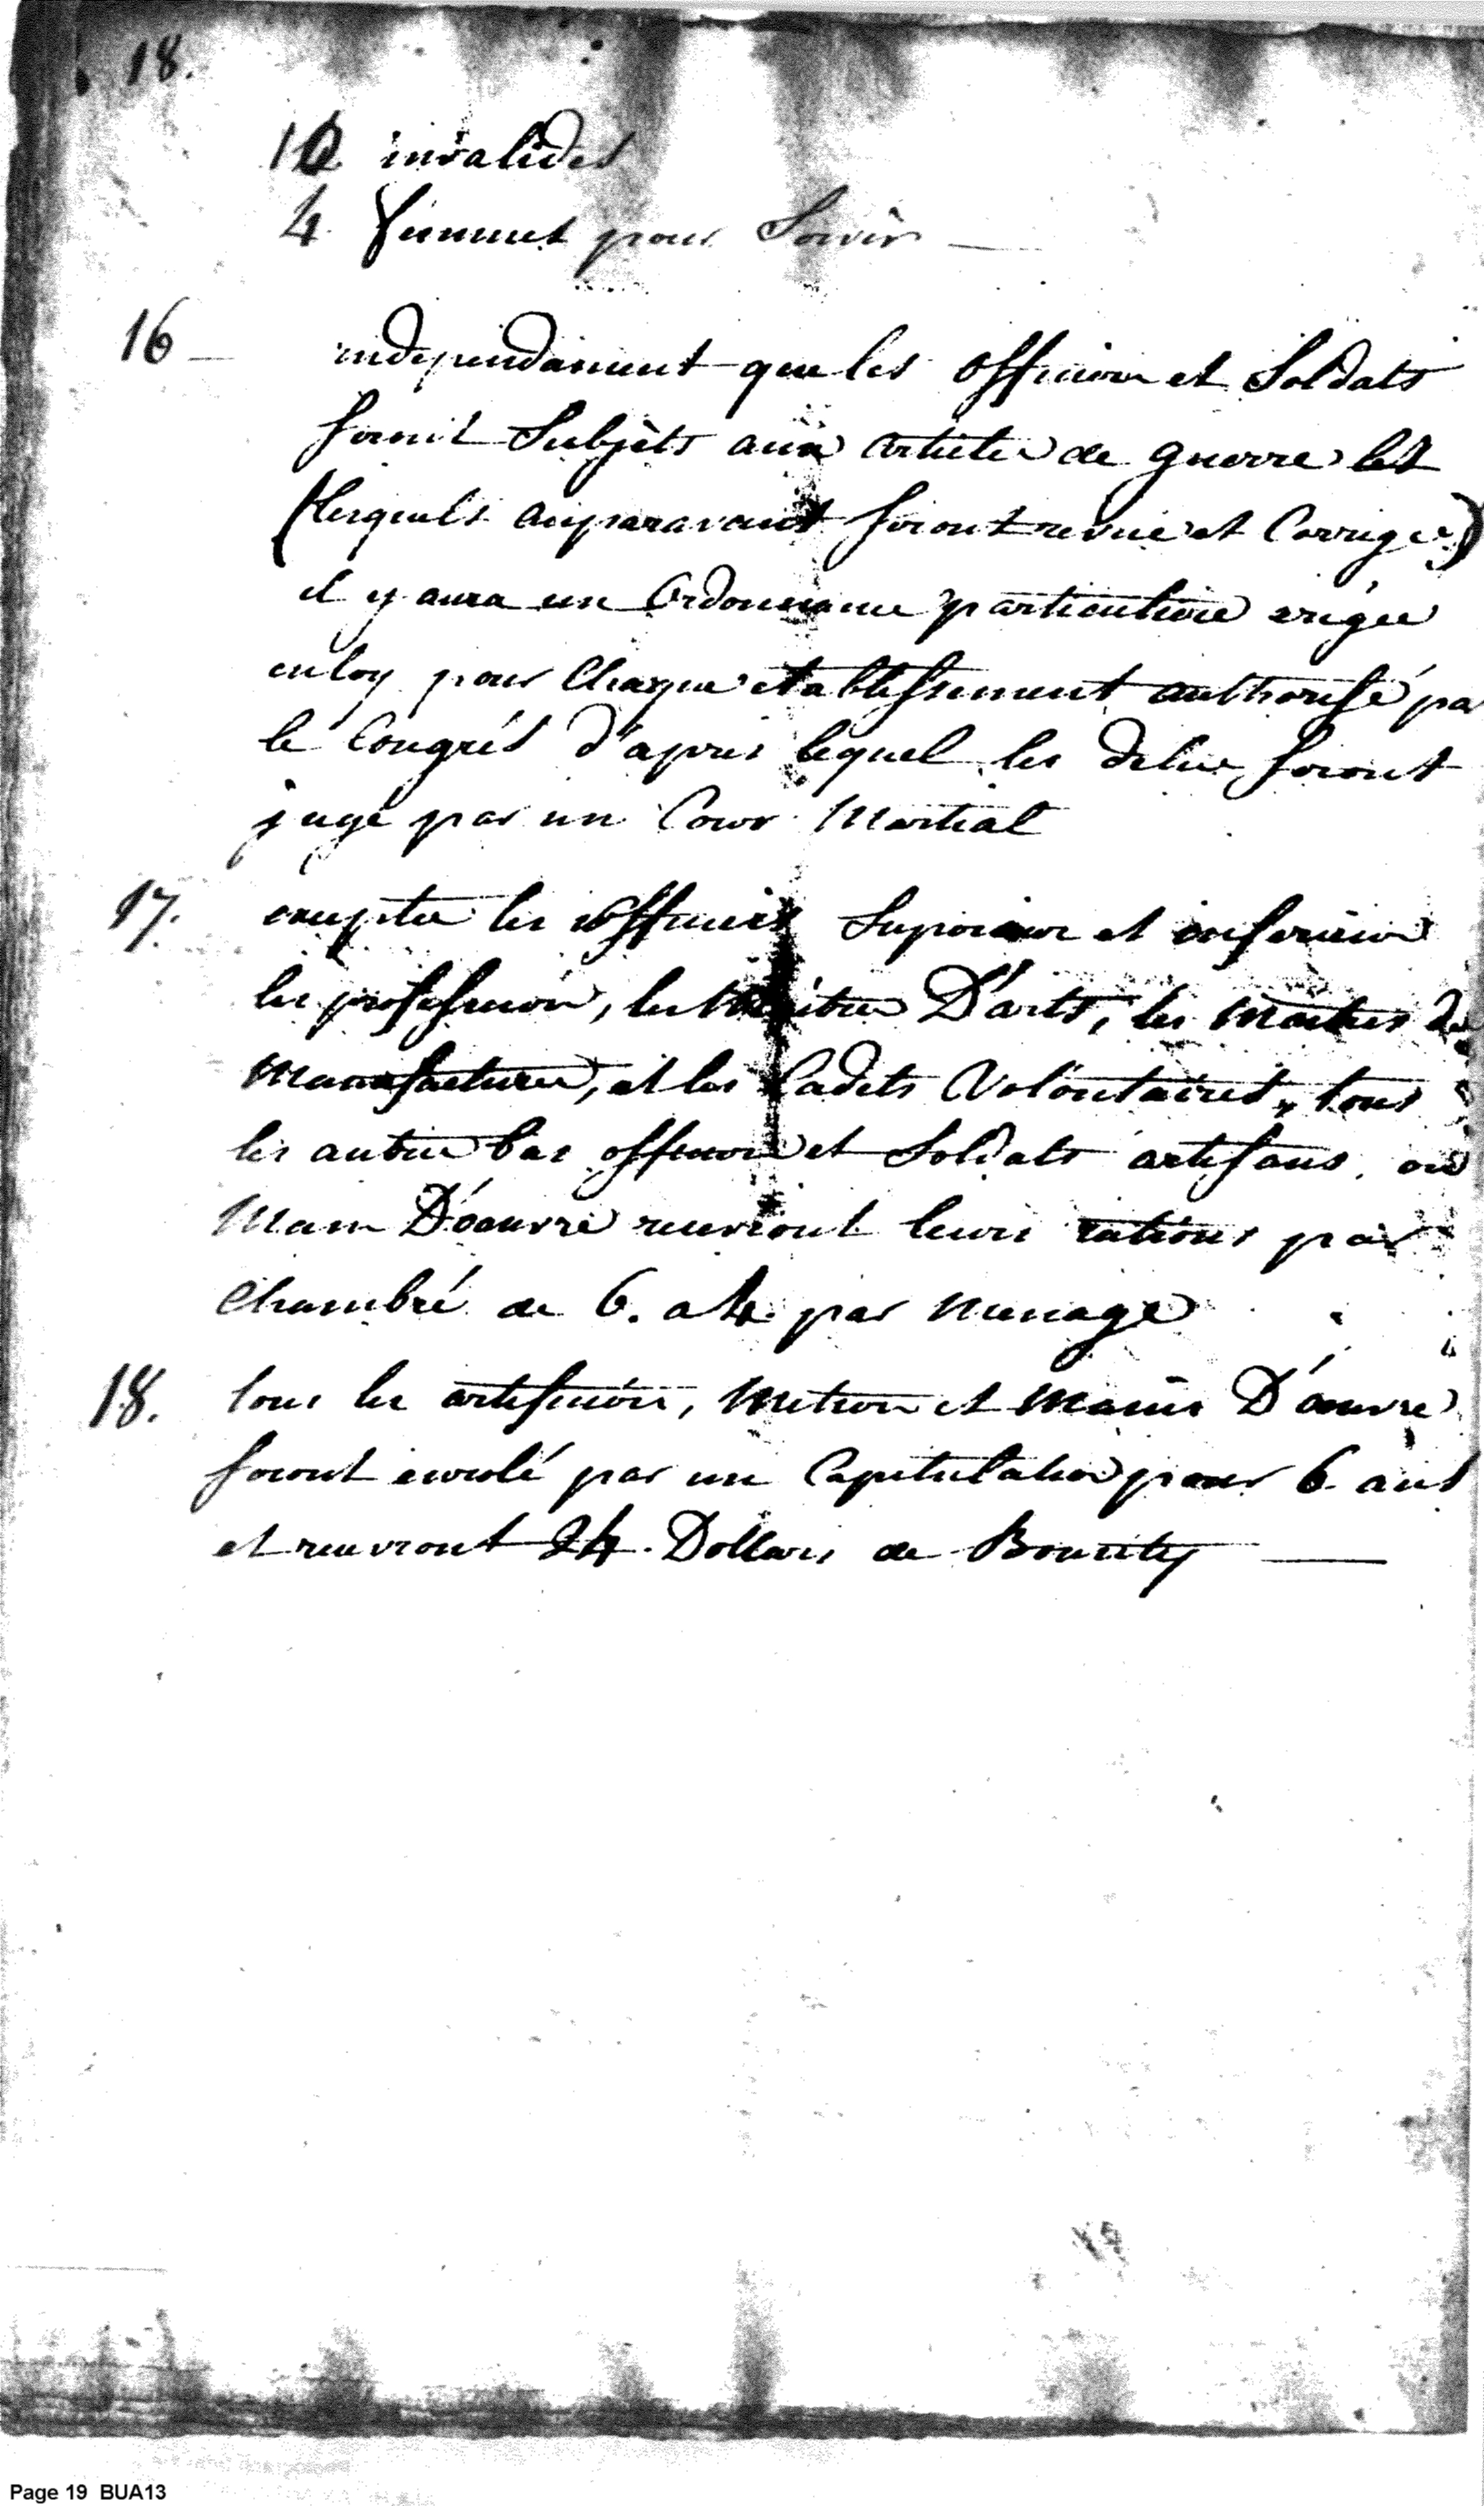 18.
10 invalides
4. femmes pour Servir
16 independament que les officiers et Soldats
seront Subjèts aux articles de guerre
(lesquels auparavant seront revue et Corrigée)
il y aura une Ordonnance particuliere erigée
en loy pour Chaque etablissement authorisé par
le Congrés d'apres lequel les delits seront
jugé par un Cour Martial
17. exceptée les officiers Superieur et inferieur
les professeurs, les Maitres D'arts, les Maitres de
Manufactures, et les Cadets Volontaires, tous
les autres bas officiers et Soldats artisans, ou
Main D'oeuvre recevront leurs rations par
Chambré de 6. a 4. par Menage
18. tous les artificiers, Metiers et Mains D'oeuvre
seront enrolé par un Capitulation pour 6 ans
et recevront 24. Dollars de Bounty
Page 19 BUA13